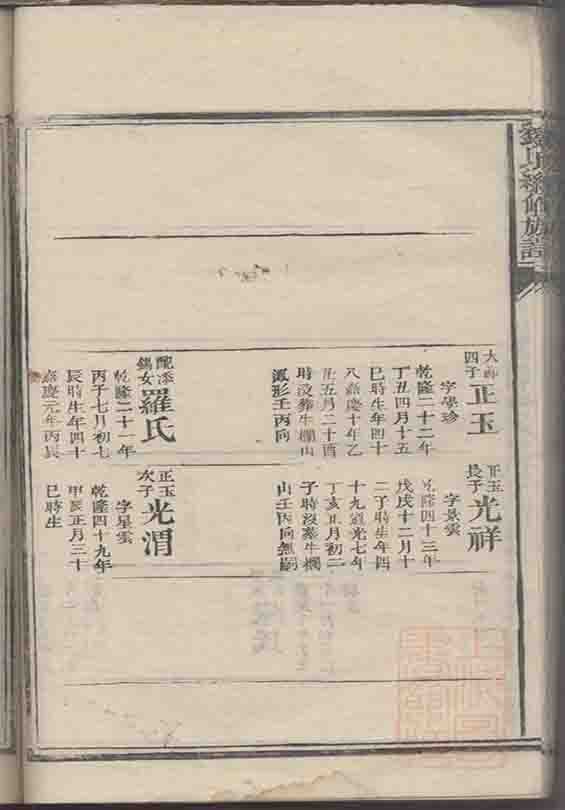 大
四子
正玉
字學珍
乾隆二十二年
丁丑四月十五
巳時生年四十
八嘉慶十年乙
丑五月二十酉
時沒葬牛欄山
形壬丙向
配添
錫女
羅氏
乾隆二十一年
丙子七月初七
辰時生年四十
嘉慶元年丙辰
正玉
長子
光祥
字景雲
乾隆四十三年
戊戌十二月十
二子時生年四
十九道光七年
丁亥正月初二
子時沒葬牛欄
山壬丙向無嗣
正玉
次子
光渭
字星雲
乾隆四十九年
甲辰正月三十
巳時生
氏續修族譜